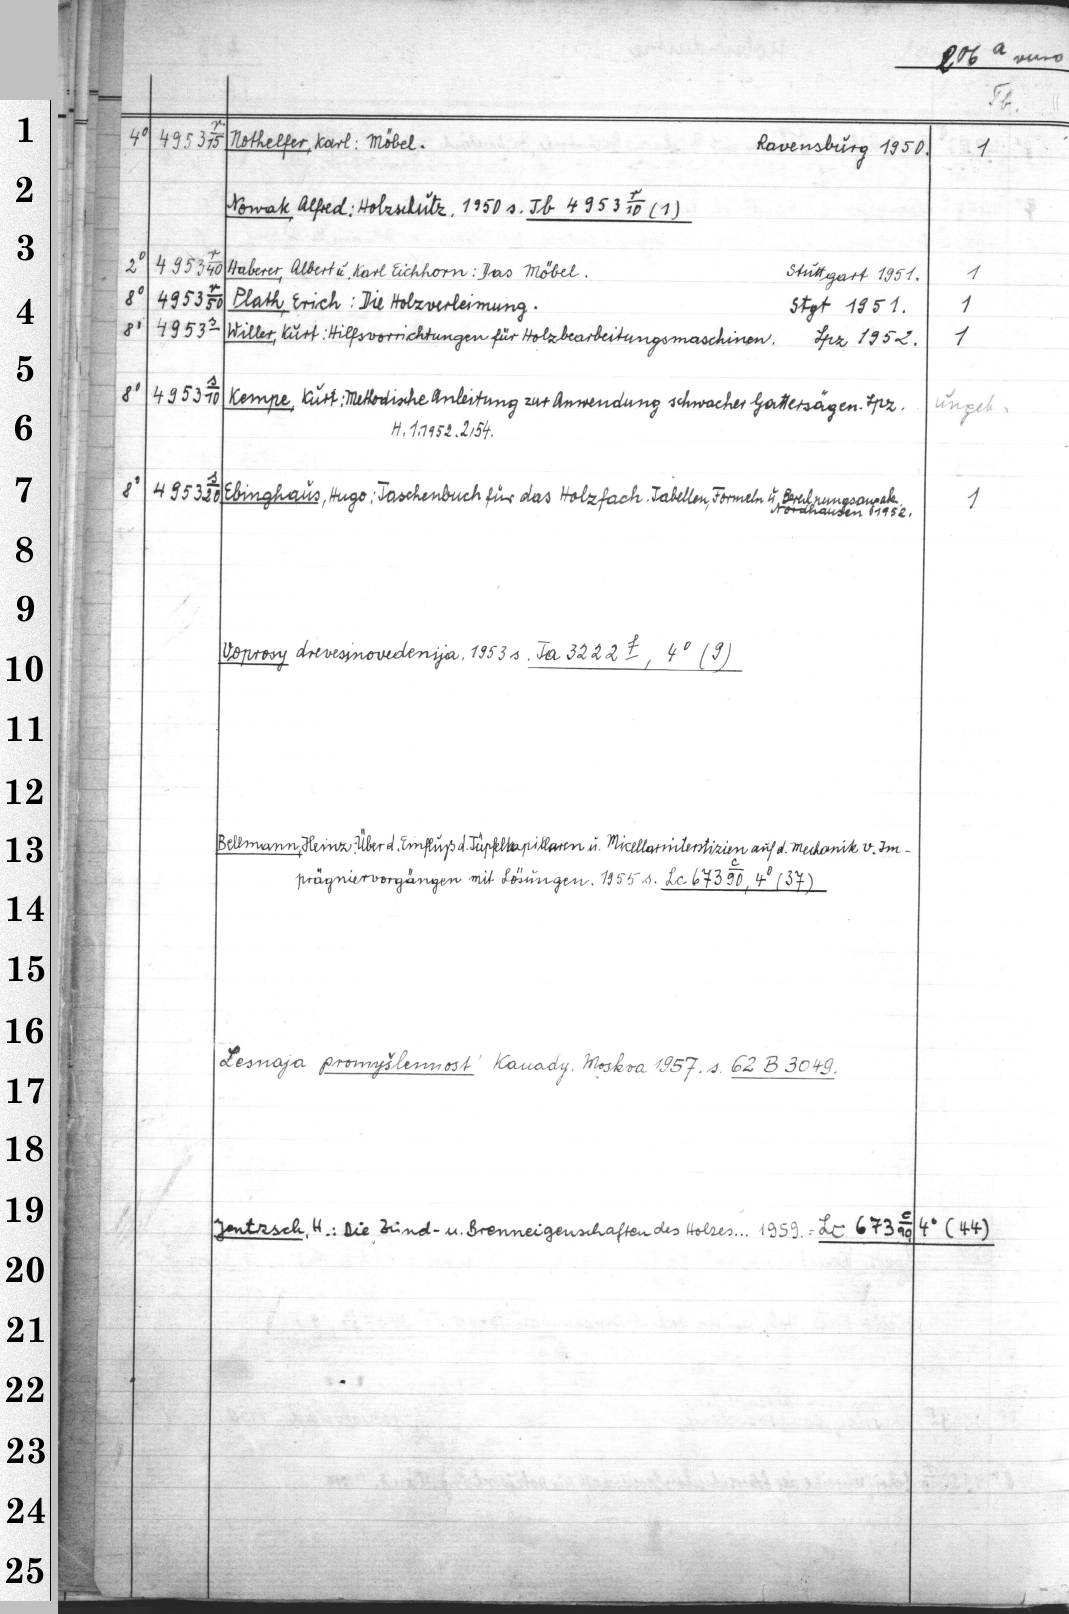 206 a verso
Tb.
1
4° 4953 r/15 Nothelfer, Karl: Möbel. Ravensburg 1950. 1
2
Nowak, Alfred: Holzschutz. 1950 s. Tb 4953 r/10 (1)
3
2° 4953 r/40 Haberer, Albert u. Karl Eichhorn: Das Möbel. Stuttgart 1951. 1
4
8° 4953 r/50 Plath, Erich: Die Holzverleimung. Stgt 1951. 1
8° 4953 s Willer, Kurt: Hilfsvorrichtungen für Holzbearbeitungsmaschinen. Lpz 1952. 1
5
8° 4953 s/10 Kempe, Kurt: Methodische Anleitung zur Anwendung schwacher Gattersägen. Lpz. ungeb.
6
H. 1.1952. 2,54.
7
8° 4953 s/20 Ebinghaus, Hugo: Taschenbuch für das Holzfach. Tabellen, Formeln u. 1
Nordhausen 1952.
8
9
10
Voprosy drevesinovedenija. 1953 s. Ta 3222 f, 4° (9)
11
12
13
Bellmann, Heinz: Über d. Einfluß d. Tüpfelkapillaren u. Micellarinterstizien auf d. Mechanik v. Im-
prägniervorgängen mit Lösungen. 1955 s. Lc 673 c/90, 4° (37)
14
15
16
Lesnaja promyšlennost' Kanady. Moskva 1957. s. 62 B 3049.
17
18
19
Jentzsch, H.: Die Zünd- u. Brenneigenschaften des Holzes... 1959. = Lc 673 c/90, 4° (44)
20
21
22
23
24
25